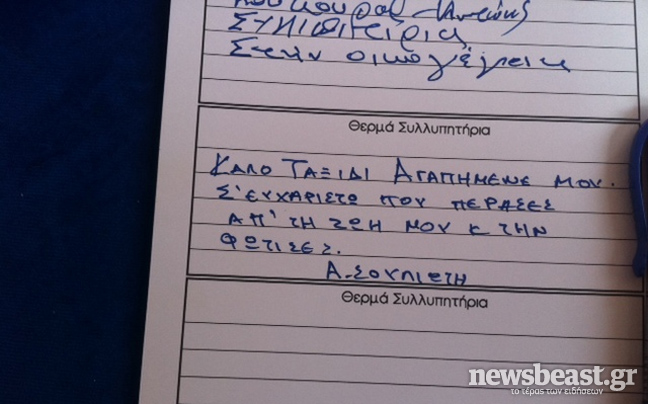 Αντώνης
Συλλυπητήρια
Στην οικογένεια
Θερμά Συλλυπητήρια
ΚΑΛΟ ΤΑΞΙΔΙ ΑΓΑΠΗΜΕΝΕ ΜΟΥ.
Σ'ΕΥΧΑΡΙΣΤΩ ΠΟΥ ΠΕΡΑΣΕΣ
ΑΠ' ΤΗ ΖΩΗ ΜΟΥ Κ ΤΗΝ
ΦΩΤΙΣΕΣ.
Α. ΣΟΥΛΙΩΤΗ
Θερμά Συλλυπητήρια
newsbeast.gr
το τέρας των ειδήσεων